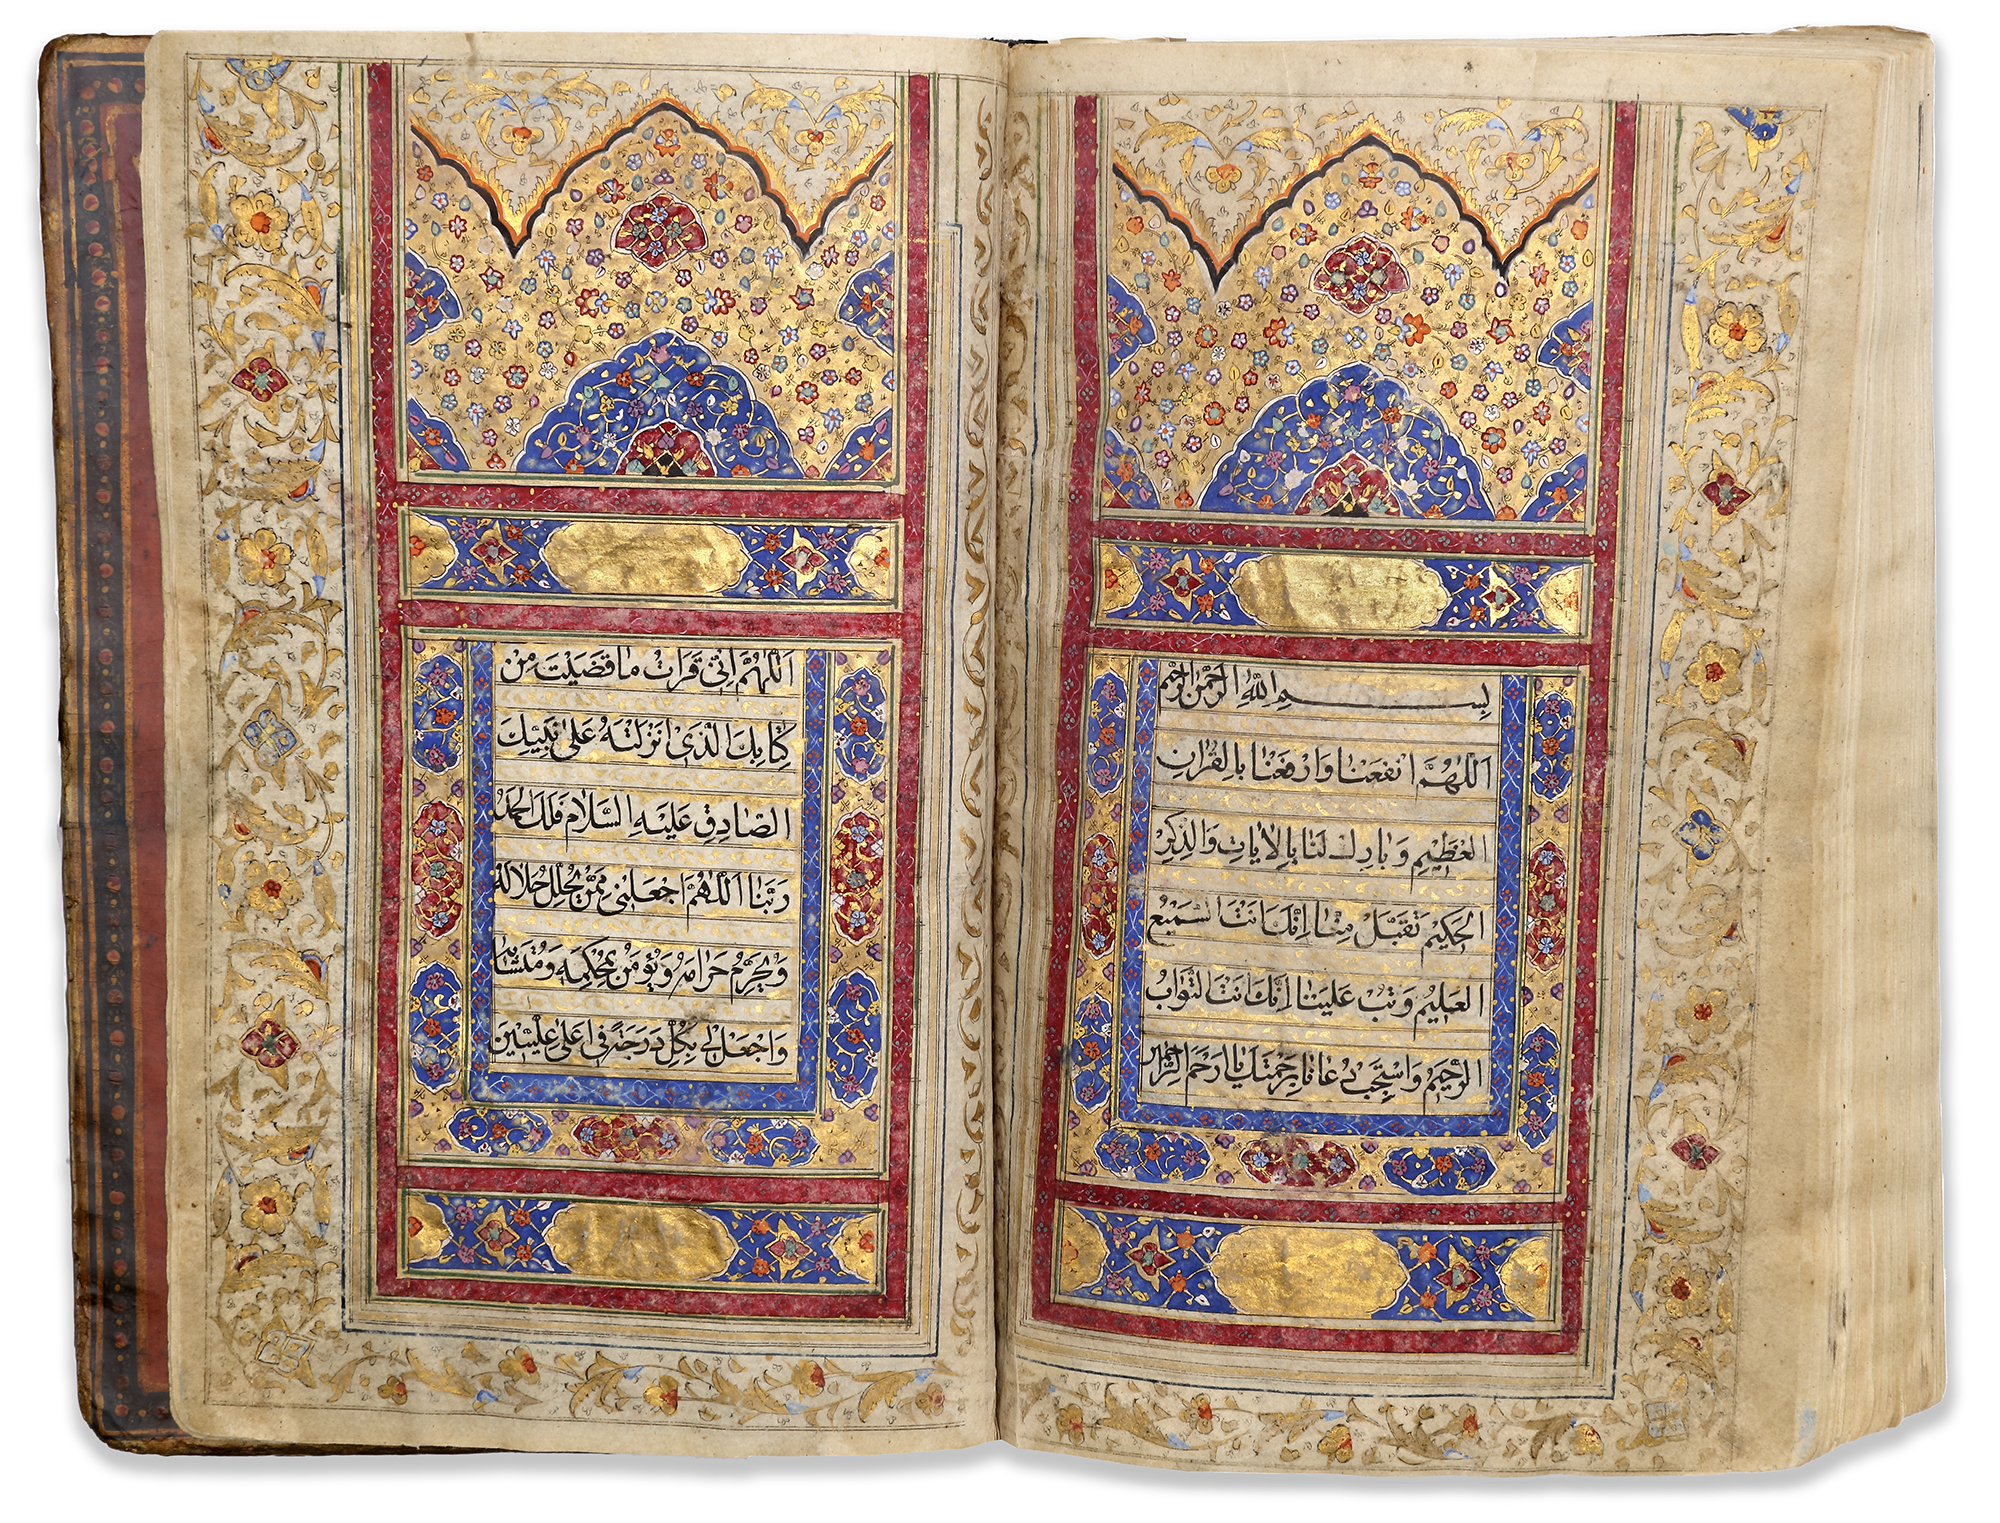 بِسْمِ اللّٰهِ الرَّحْمٰنِ الرَّحِیْمِ
اَللّٰهُمَّ انْفَعْنَا وَارْفَعْنَا بِالْقُرْاٰنِ
الْعَظِیْمِ وَبَارِكْ لَنَا بِالْاٰیَاتِ وَالذِّكْرِ
الْحَكِیْمِ تَقَبَّلْ مِنَّا اِنَّكَ اَنْتَ السَّمِیْعُ
الْعَلِیْمُ وَتُبْ عَلَیْنَا اِنَّكَ اَنْتَ التَّوَّابُ
الرَّحِیْمُ وَاسْتَجِبْ دُعَانَا بِرَحْمَتِكَ یَا اَرْحَمَ الرَّاحِمِیْنَ
اَللّٰهُمَّ اِنِّی قَرَاْتُ مَا قَضَیْتَ مِنْ
كِتَابِكَ الَّذِیْ اَنْزَلْتَهُ عَلٰی نَبِیِّكَ
الصَّادِقِ عَلَیْهِ السَّلَامُ فَلَكَ الْحَمْدُ
رَبَّنَا اَللّٰهُمَّ اجْعَلْنِی مِمَّنْ یُحَلِّلُ حَلَالَهُ
وَیُحَرِّمُ حَرَامَهُ وَیُؤْمِنُ بِمُحْكَمِهِ وَمُتَشَابِهِهِ
وَاجْعَلْ لِی بِكُلِّ دَرَجَةً فِی اَعْلٰی عِلِّیِّیْنَ